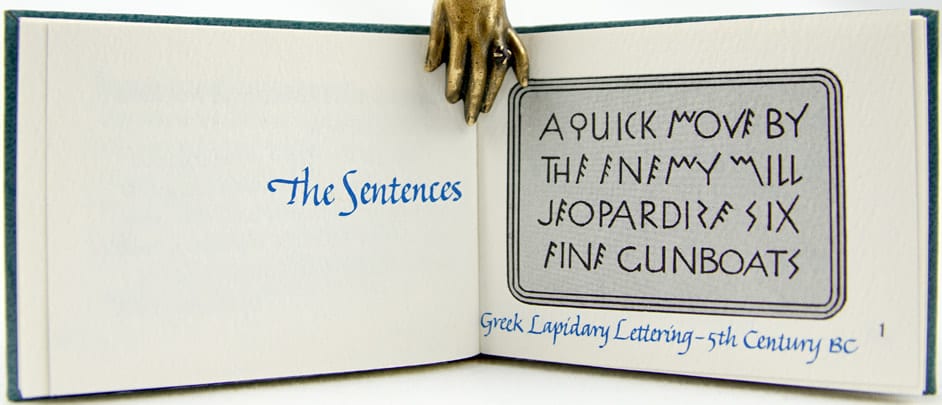 The Sentences
A QUICK MOVE BY
THE ENEMY WILL
JEOPARDIZE SIX
FINE GUNBOATS
Greek Lapidary Lettering – 5th Century BC
1